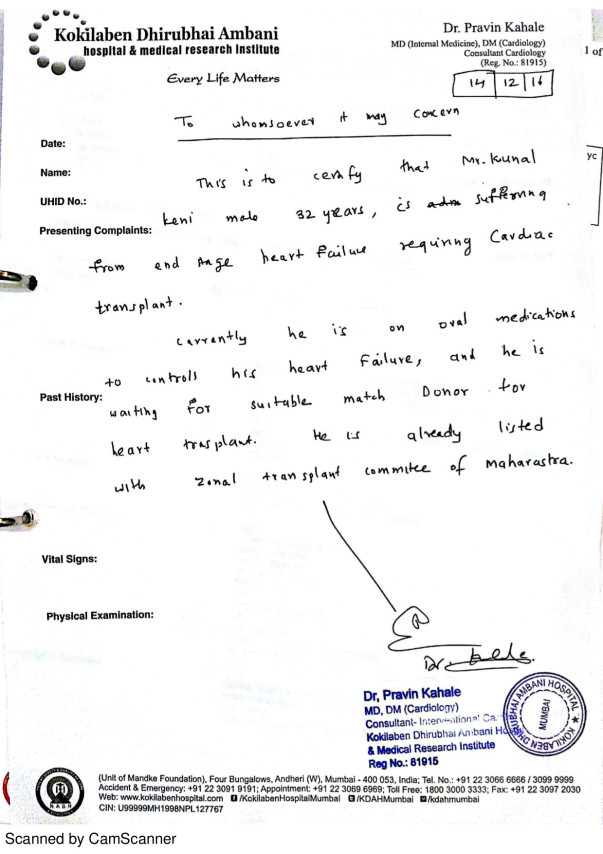 Kokilaben Dhirubhai Ambani
hospital & medical research institute
Every Life Matters
Dr. Pravin Kahale
MD (Internal Medicine), DM (Cardiology)
Consultant Cardiology
(Reg. No.: 81915)
1 of
14 12 16
To whomsoever it may concern
Date:
yc
Name:
This is to certify that Mr. Kunal
UHID No.:
keni male 32 years, is adm suffering
Presenting Complaints:
from end stage heart failure requiring Cardiac
transplant.
currently he is on oral medications
to controll his heart Failure, and he is
Past History:
waiting for suitable match Donor for
heart trasplant. He is already listed
with zonal transplant commitee of Maharastra.
Vital Signs:
Physical Examination:
Dr. Kahale.
Dr, Pravin Kahale
MD, DM (Cardiology)
Consultant- Interventional Ca
Kokilaben Dhirubhai Ambani Ho
& Medical Research Institute
Reg No.: 81915
KOKILABEN DHIRUBHAI AMBANI HOSPITAL
MUMBAI
NABH
(Unit of Mandke Foundation), Four Bungalows, Andheri (W), Mumbai - 400 053, India; Tel. No.: +91 22 3066 6666 / 3099 9999
Accident & Emergency: +91 22 3091 9191; Appointment: +91 22 3069 6969; Toll Free: 1800 3000 3333; Fax: +91 22 3097 2030
Web: www.kokilabenhospital.com /KokilabenHospitalMumbai /KDAHMumbai /kdahmumbai
CIN: U99999MH1998NPL127767
Scanned by CamScanner